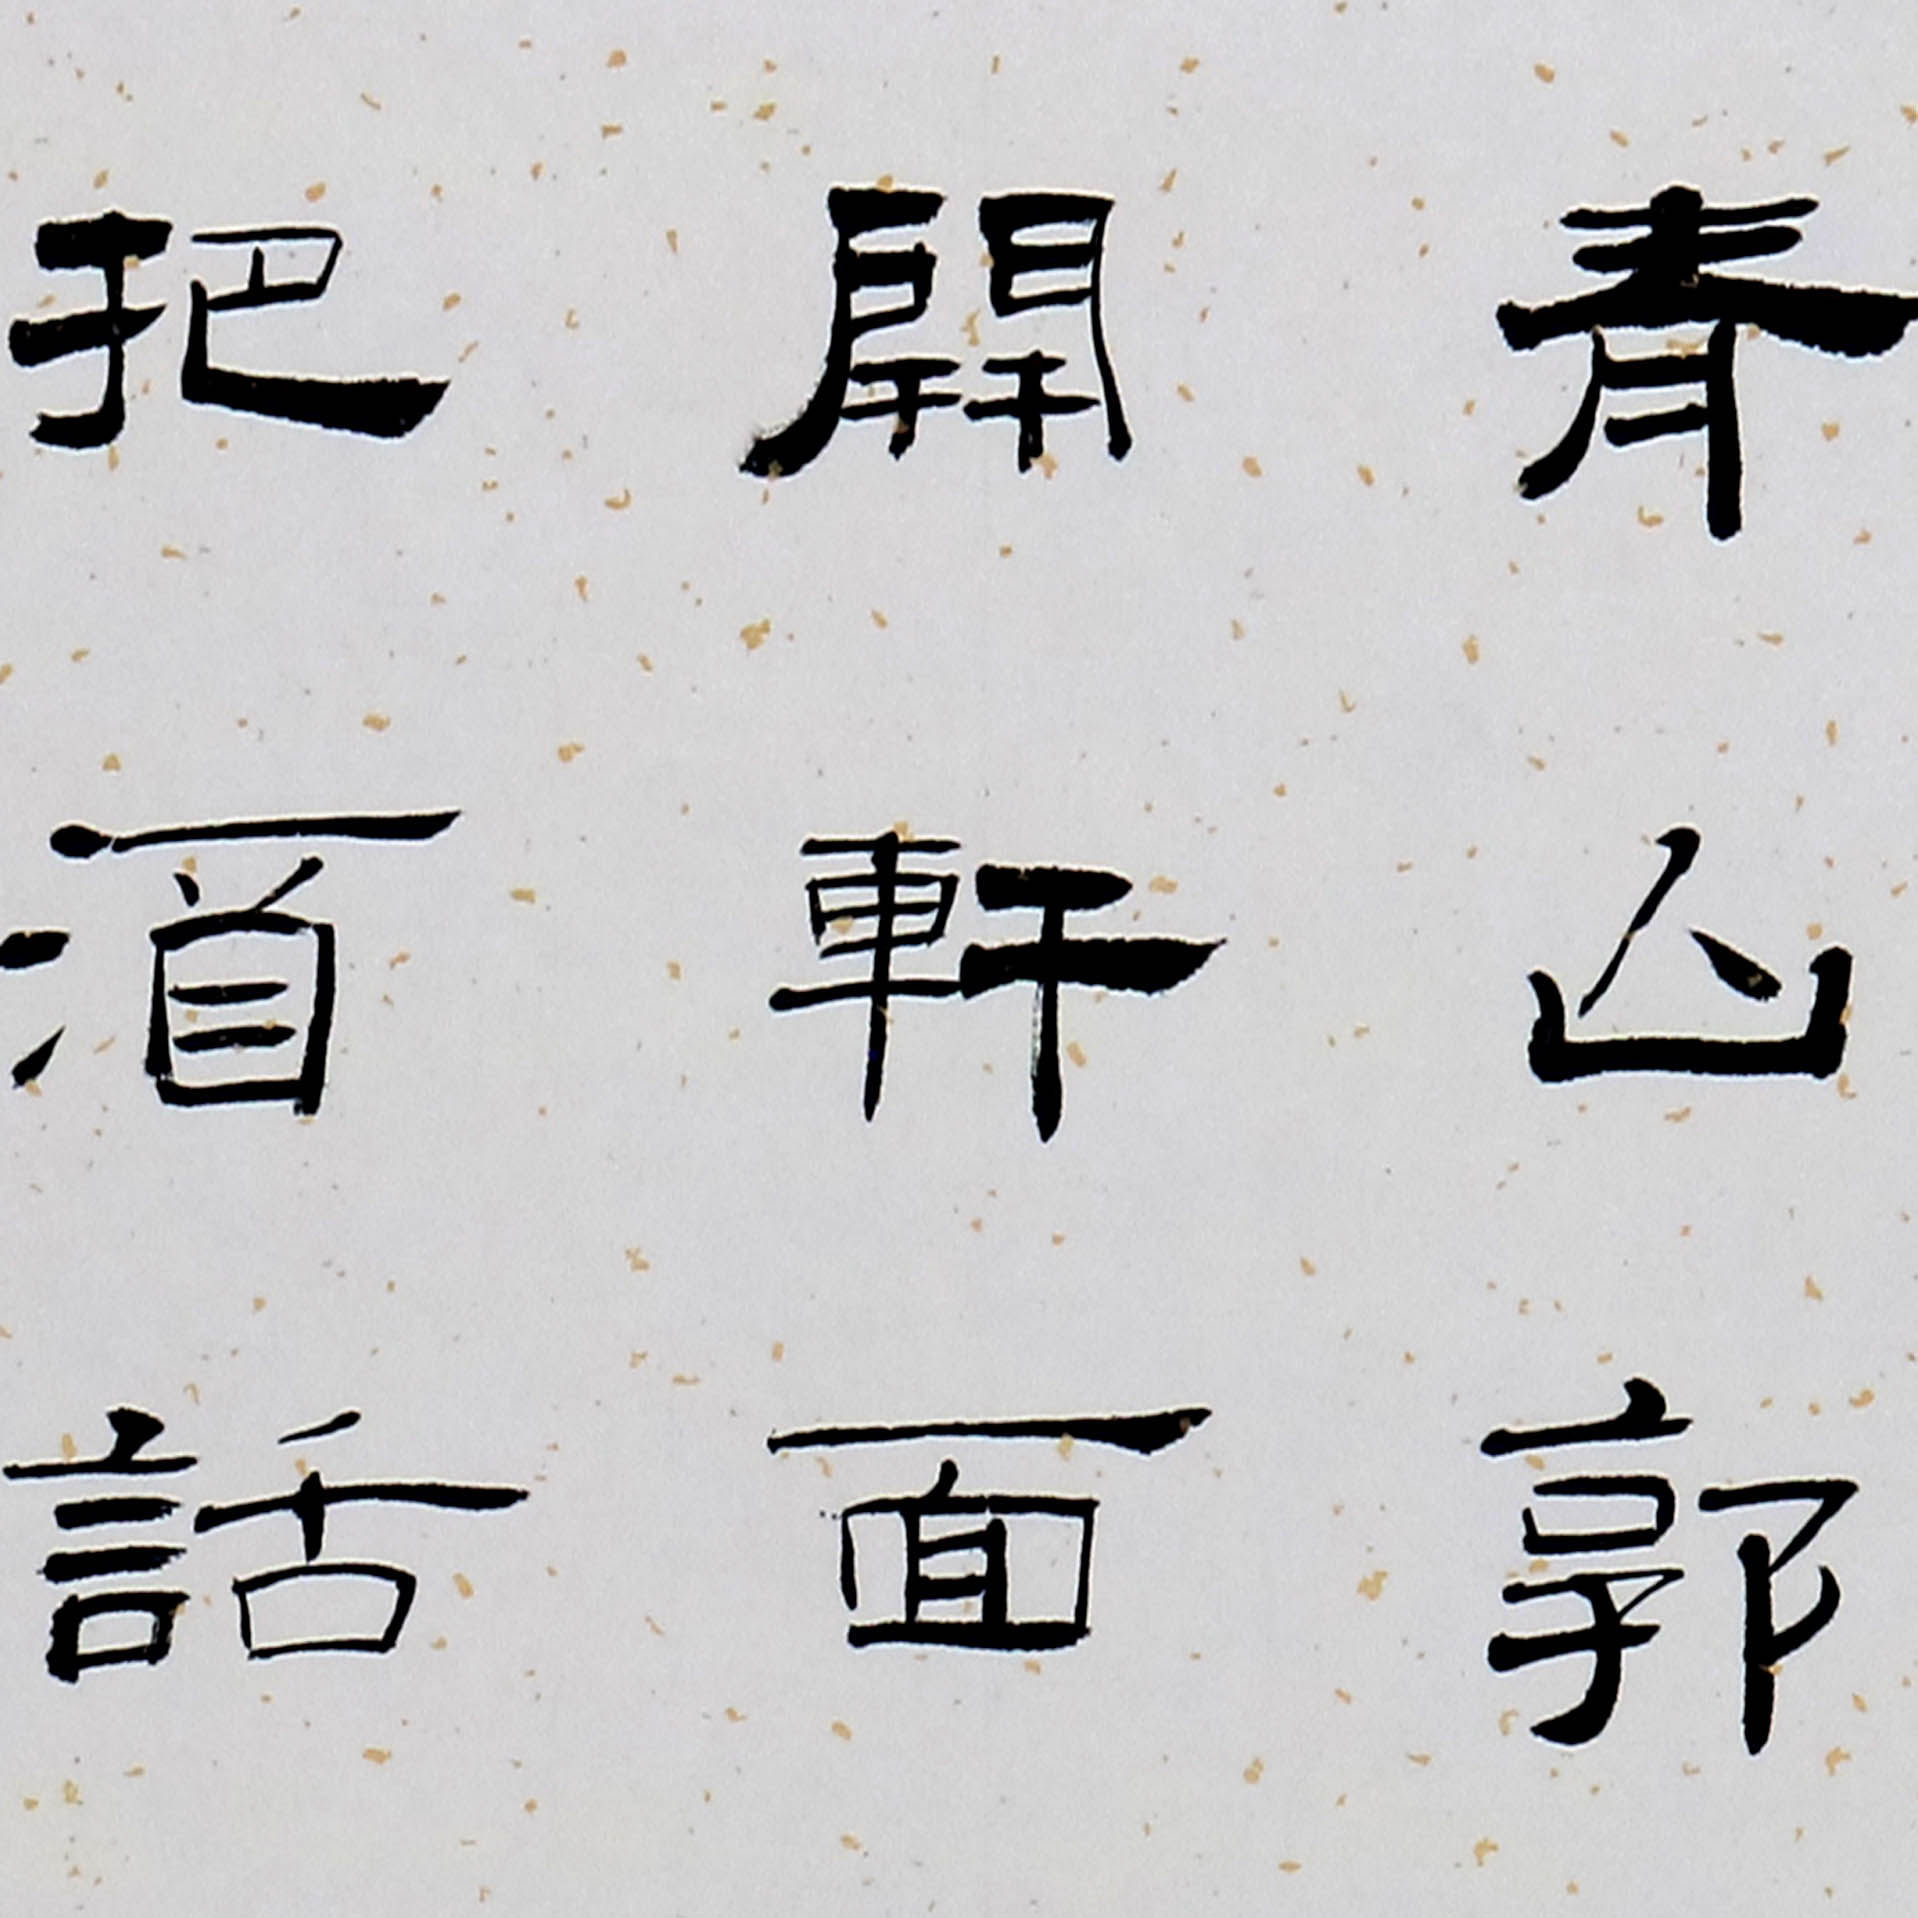 青山郭
開軒面
把酒話